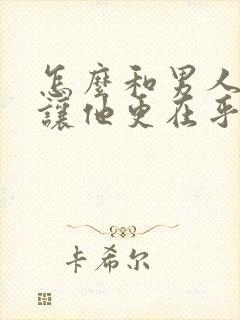 怎麼和男人
讓他更在乎
卡希尔